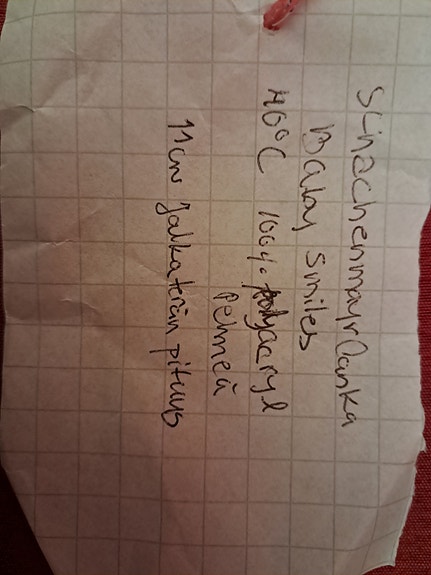 Schachenmayr lanka
Baby Smiles
40°C 100% polyacryl
Pehmeä
11cm Jalkaterän pituus